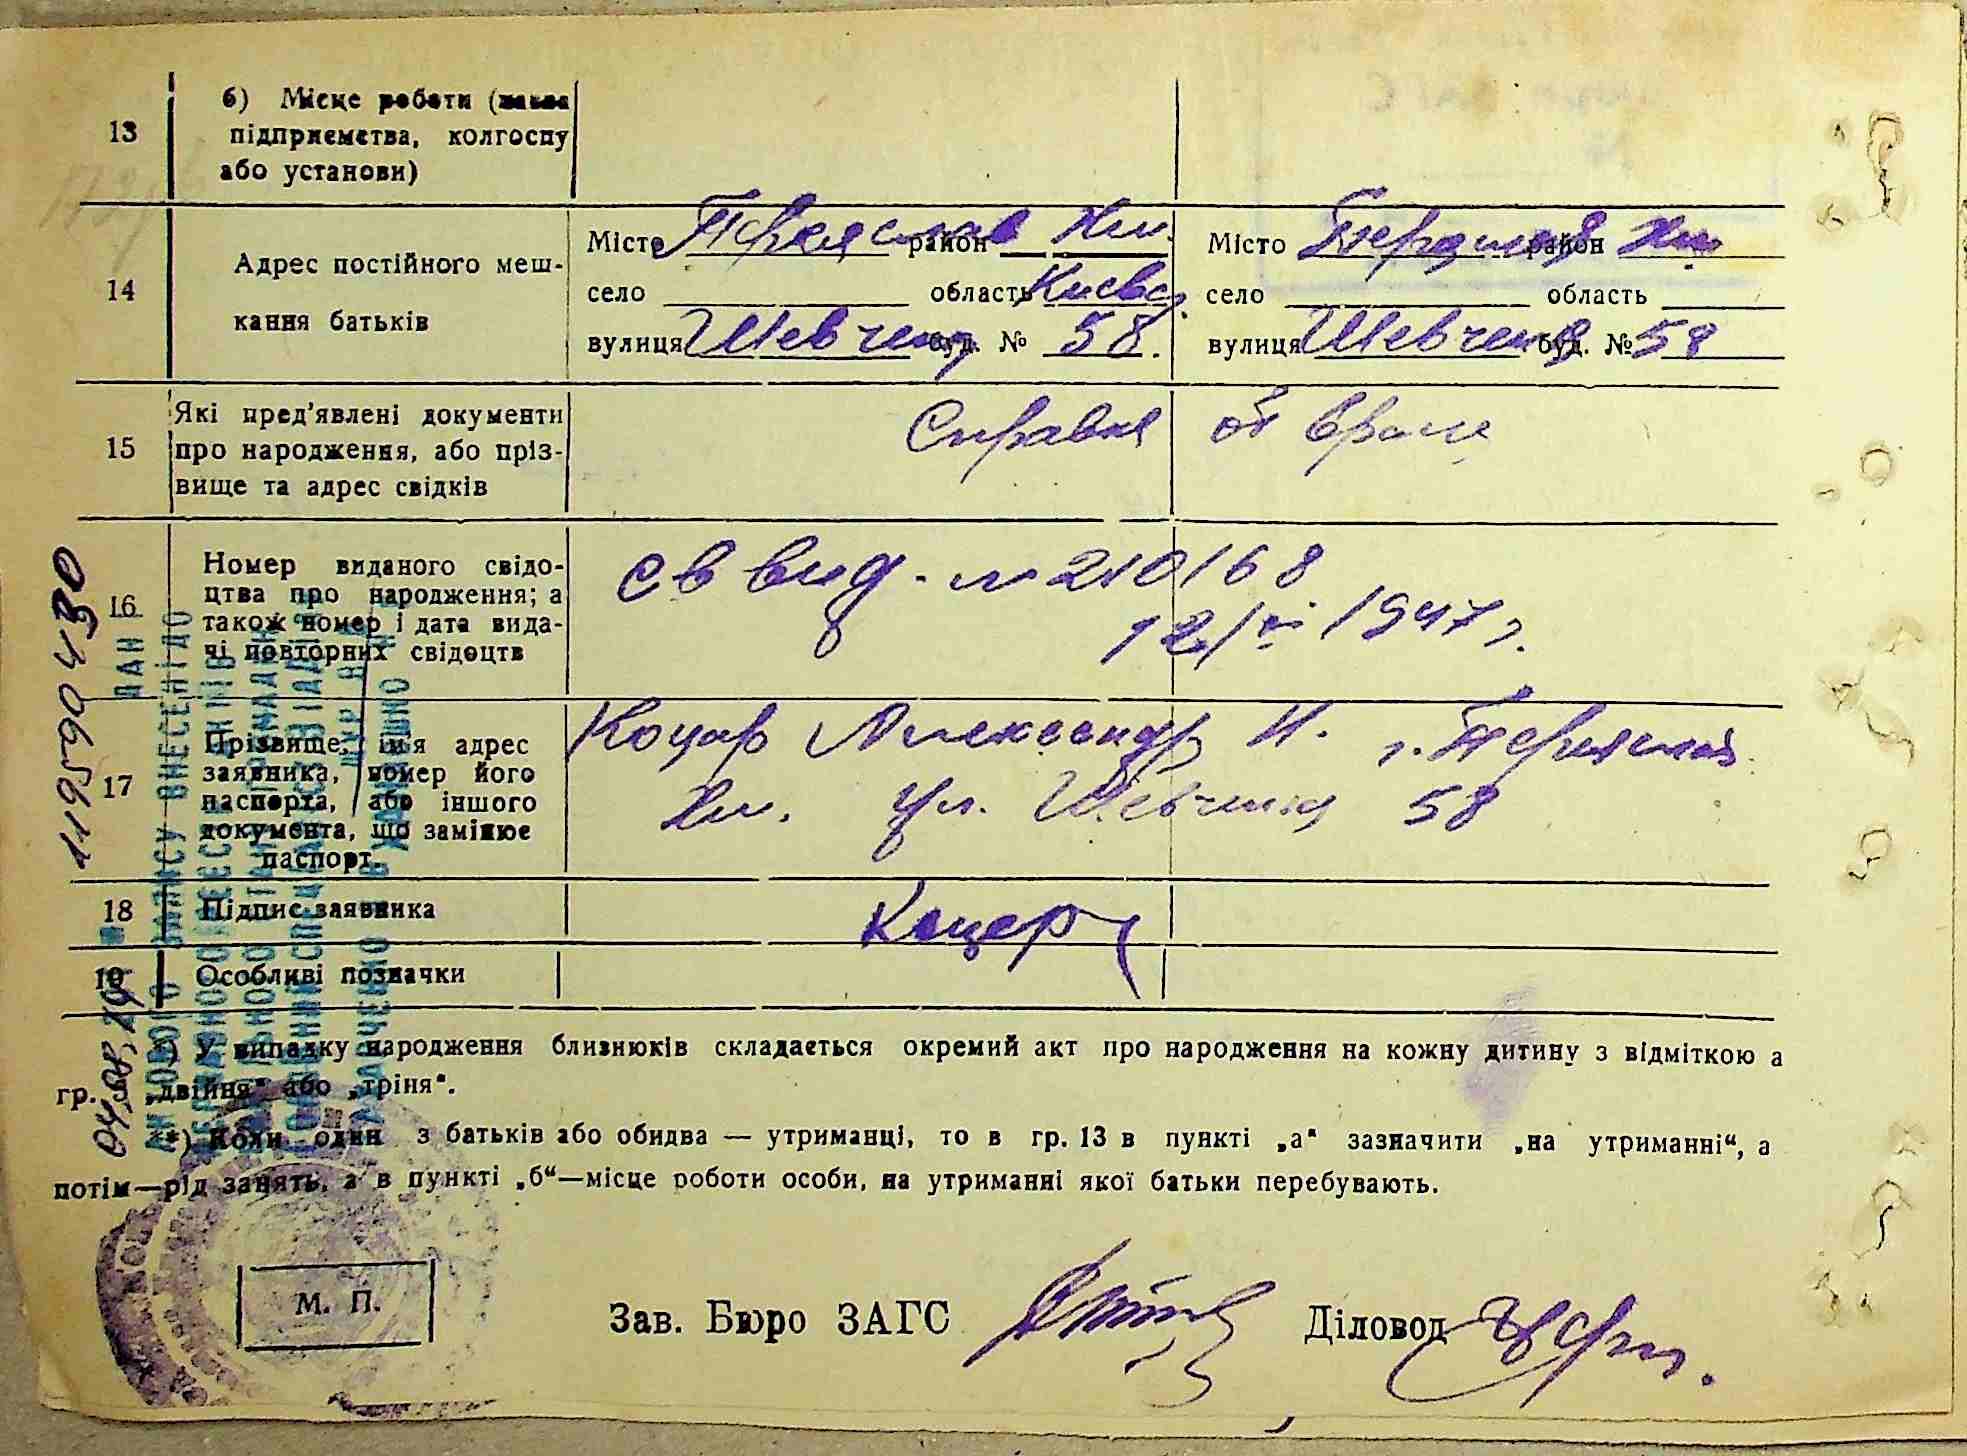 13
б) Місце роботи (назва
підприємства, колгоспу
або установи)
14
Адрес постійного меш-
кання батьків
Місто Переяслав район Хм.
село область Киевс.
вулиця Шевченко буд. № 58.
Місто Переяслав район Хм
село область
вулиця Шевченко буд. № 58
15
Які пред'явлені документи
про народження, або пріз-
вище та адрес свідків
Справка от врача
16
Номер виданого свідо-
цтва про народження; а
також номер і дата вида-
чі повторних свідоцтв
св выд. №210168
12/VI 1947 г.
17
Прізвище, ім'я адрес
заявника, номер його
паспорта, або іншого
документа, що замінює
паспорт.
Коцар Александр И. г. Переяслав
Хм. ул. Шевченко 58
18
Підпис заявника
Коцар
19
Особливі позначки
*) У випадку народження близнюків складається окремий акт про народження на кожну дитину з відміткою а
гр. 3 „двійня“ або „тріня“.
**) Коли один з батьків або обидва — утриманці, то в гр. 13 в пункті „а“ зазначити „на утриманні“, а
потім—рід занять, а в пункті „б“—місце роботи особи, на утриманні якої батьки перебувають.
М. П.
Зав. Бюро ЗАГС
Діловод
1195904 30